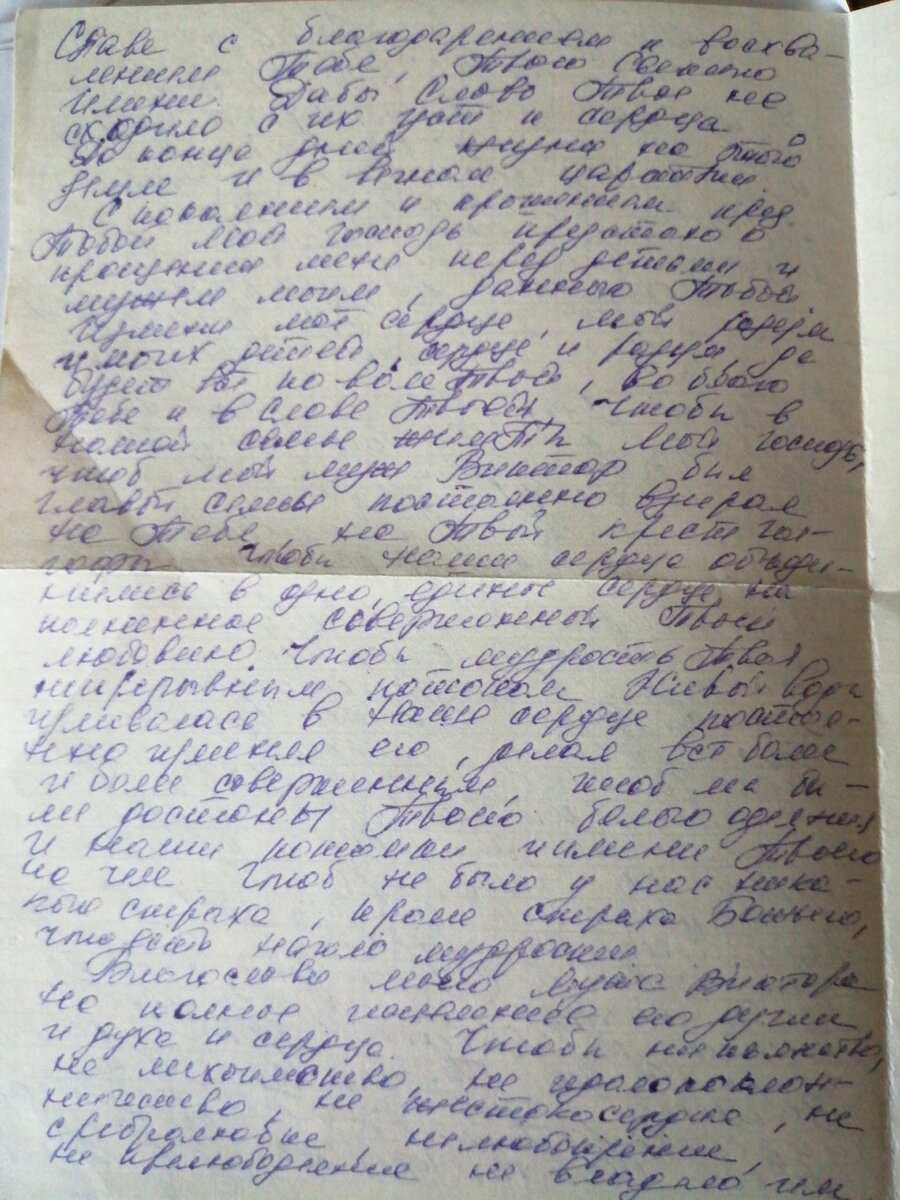 Славе с благодарением и восхва-
лением Тебе, Твоего Святого
Имени. Дабы Слово Твое не
сходило с их уст и сердца
До конца дней жизни на этой
Земле и в вечном царствии
С покаянием и прошением пред
Тобой мой Господь предстаю о
прощении меня перед детьми и
мужем моим, данного Тобой
Измени моё сердце, мой разум
и моих детей, сердце и разум, да
будет всё по воле Твоей, во славу
Тебе и в слове Твоём. Чтобы в
нашей семье Ты мой господь,
чтоб мой муж Виктор был
главой семьи постоянно взирая
на Тебя на Твой крест гол-
гофы. Чтобы наши сердца объеди-
нились в одно, единое сердце на-
полненное совершенной Твоей
любовью. Чтобы мудрость Твоя
непрерывным потоком Живой воды
изливалась в наше сердце постоя-
нно изменяя его, делая всё более
и более совершенным, чтоб мы бы-
ли достойны Твоего белого одеяния
и имени Твоего
на нем. Чтоб не было у нас ника-
кого страха, кроме страха Божьего,
что есть начало мудрости.
Благослови моего мужа Виктора
на полное его души
и духа и сердца. Чтобы ни пьянство,
не лихоимство, не идолопоклон-
ничество, не жестокосердие, не
сребролюбие,
не прелюбодеяние не владело им